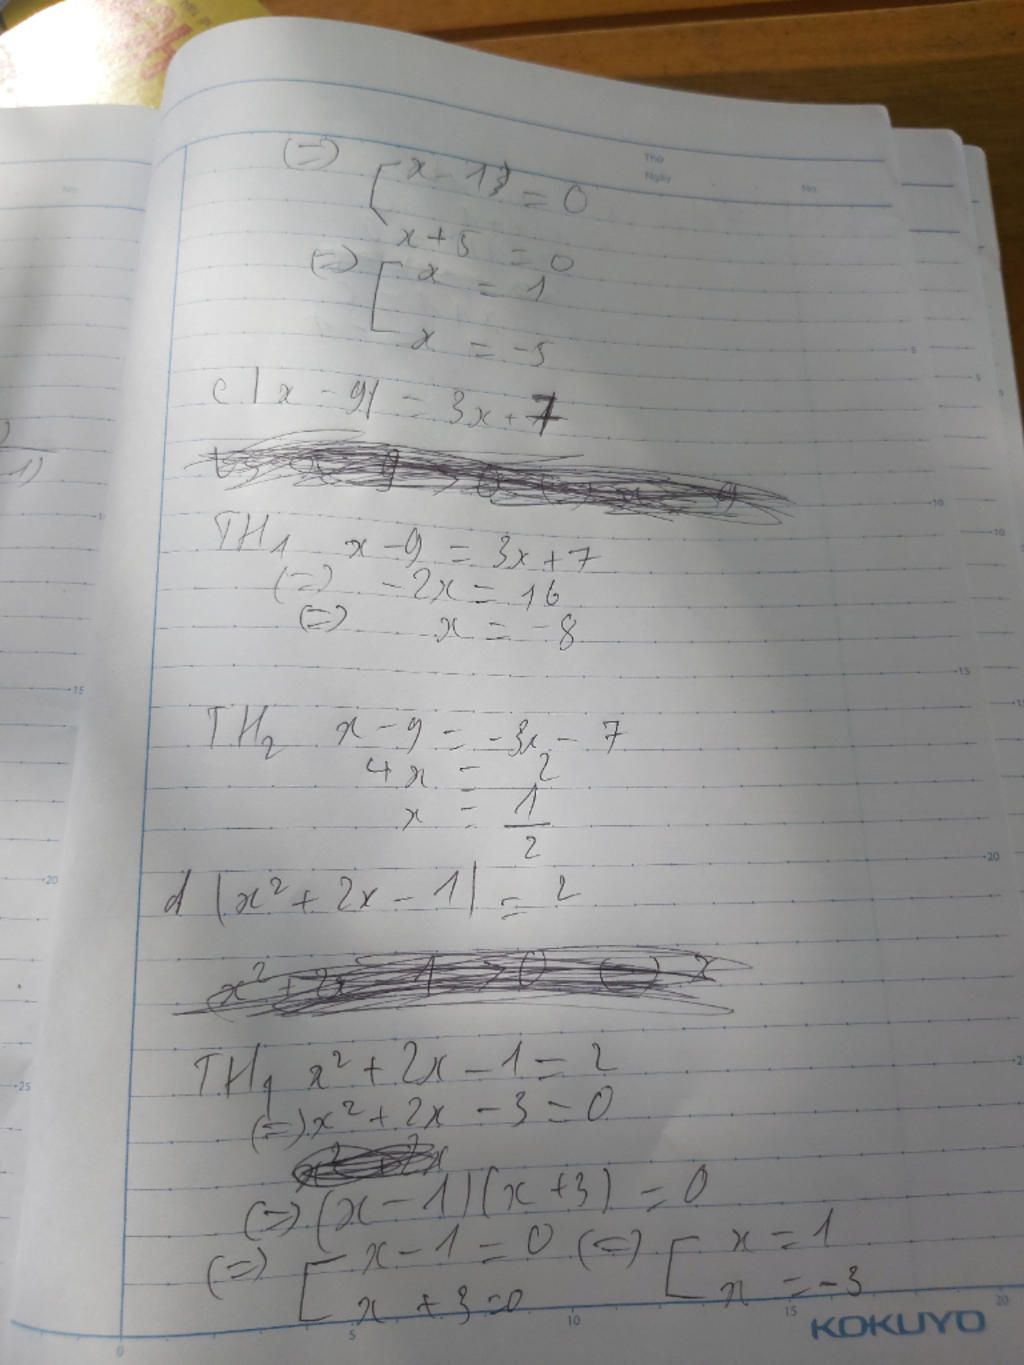 Thứ
Ngày
No.
No.
⇔ [ x - 1 = 0
x + 5 = 0
⇔ [ x = 1
x = -5
c |x - 9| = 3x + 7
TH1 x - 9 = 3x + 7
(=) -2x = 16
(=) x = -8
TH2 x - 9 = -3x - 7
4x = 2
x = 1/2
d |x² + 2x - 1| = 2
x² + 2x - 1 > 0 x
TH1 x² + 2x - 1 = 2
(=) x² + 2x - 3 = 0
(=) (x - 1)(x + 3) = 0
(=) [ x - 1 = 0 (=) [ x = 1
x + 3 = 0 x = -3
5
10
15
20
KOKUYO